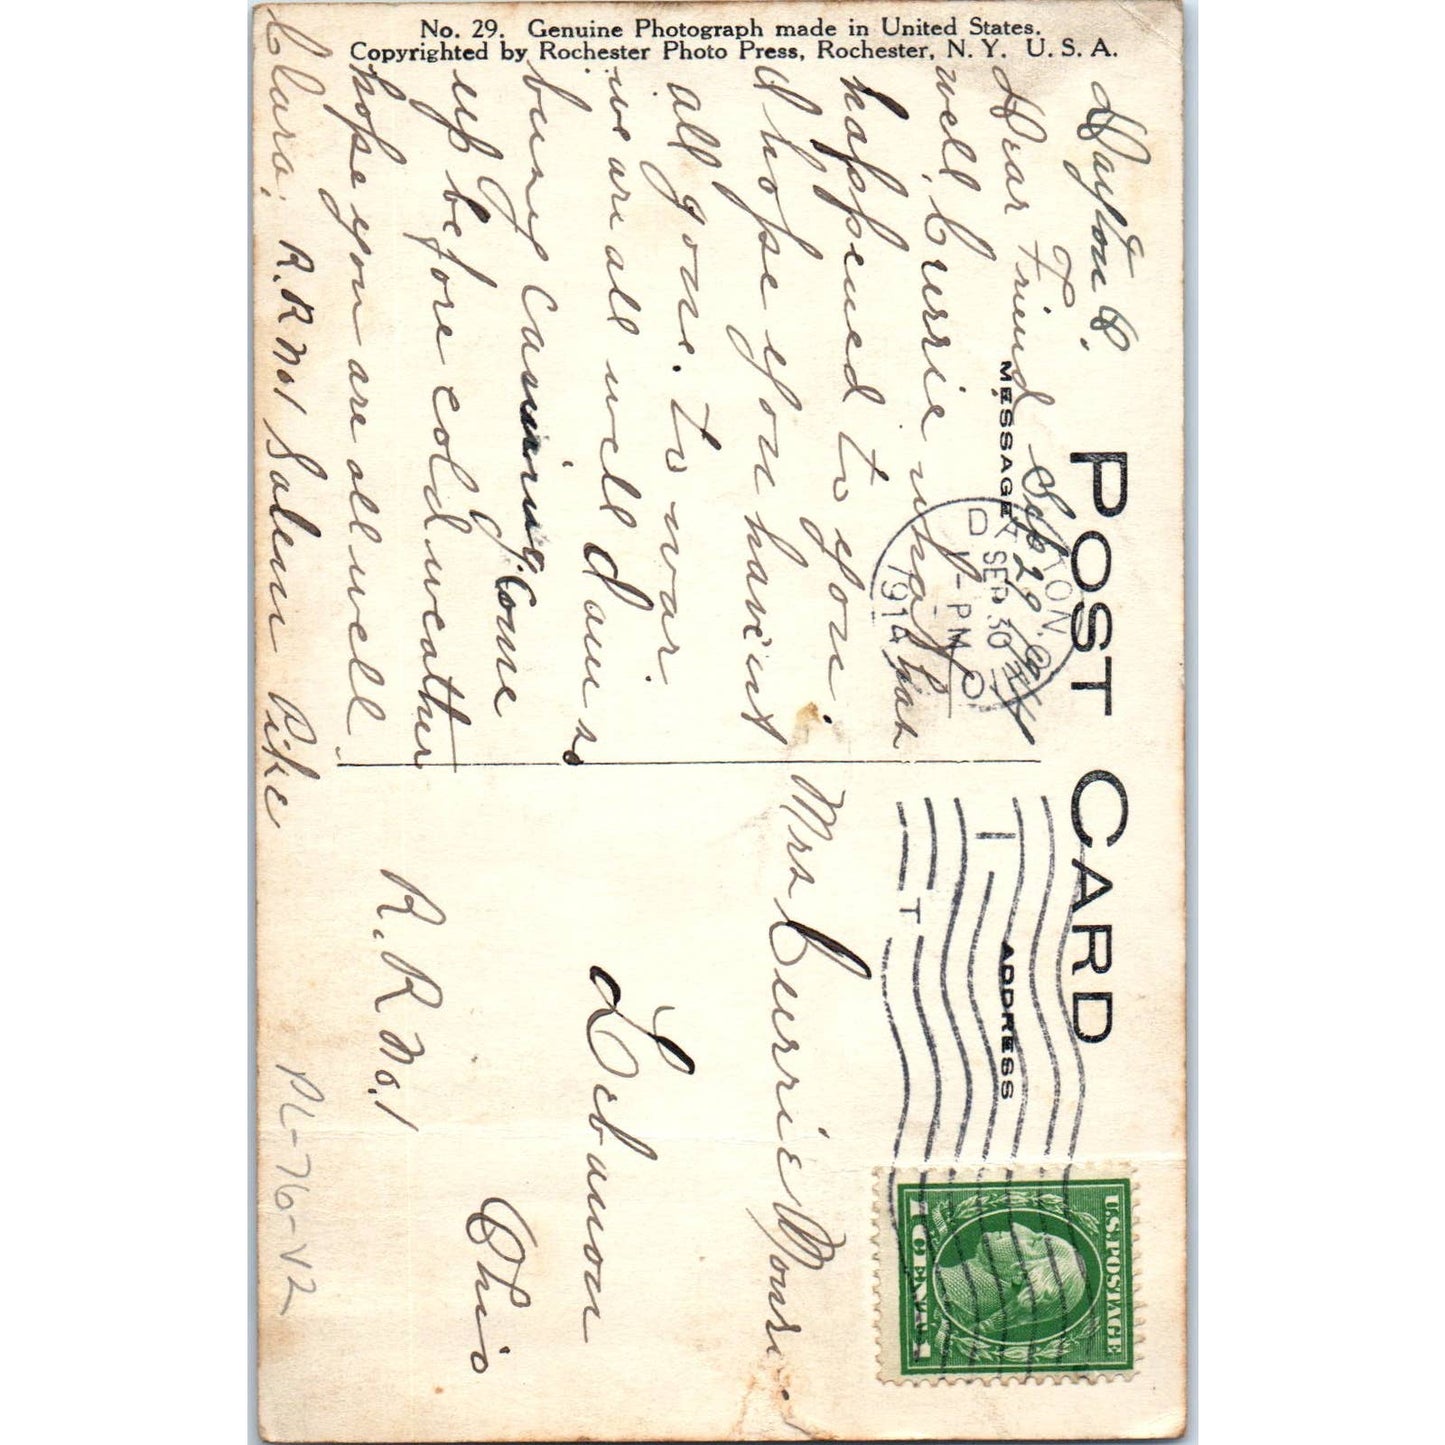 No. 29. Genuine Photograph made in United States.
Copyrighted by Rochester Photo Press, Rochester, N. Y. U. S. A.
POST CARD
MESSAGE
ADDRESS
Dayton O.
Sep 29
Dear Friend
well, Currie what has
happened to you.
I hope you havent
all gone. to war
we are all well and am so
busy Canning. Come
up before cold weather
hope you are all well.
Clara. R.R No1 Salem Pike
DAYTON. O
SEP 30
1-PM
1914
OHIO
Mrs Currie
Lebanon
Ohio
R.R No.1
PL-76-V2
U.S. POSTAGE
1 CENT 1